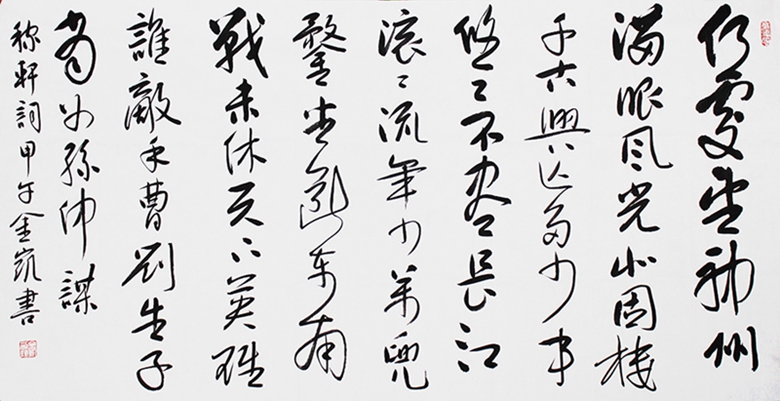 何處望神州
滿眼风光北固楼
千古興亡多少事
悠〻不盡長江
滚〻流年少萬兜
鍪坐斷东南
戰未休天下英雄
誰敵手曹劉生子
當如孫仲謀
稼軒詞甲午金書